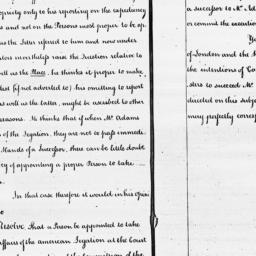 opriety only to his reporting on the expediency
and not on the Persons most proper to be ap
as the Letter referred to him and now under
the Question relative to
well as the Place, he thinks it proper to make
(if not adverted to) his omitting to report
as well as the latter, might be ascribed to other
reasons. He thinks that if when Mr. Adams
of the Legation, they are not to pass immedi
Hands of a Successor, there can be little doubt
cy of appointing a proper Person to take
In that case therefore it would in his Opini
Resolve, That a Person be appointed to take
affairs of the american Legation at the Court
a Successor to Mr. Ad
or commit the execution
of London and the
the intentions of Co
sters to succeed Mr.
directed on this subje
may perfectly corresp